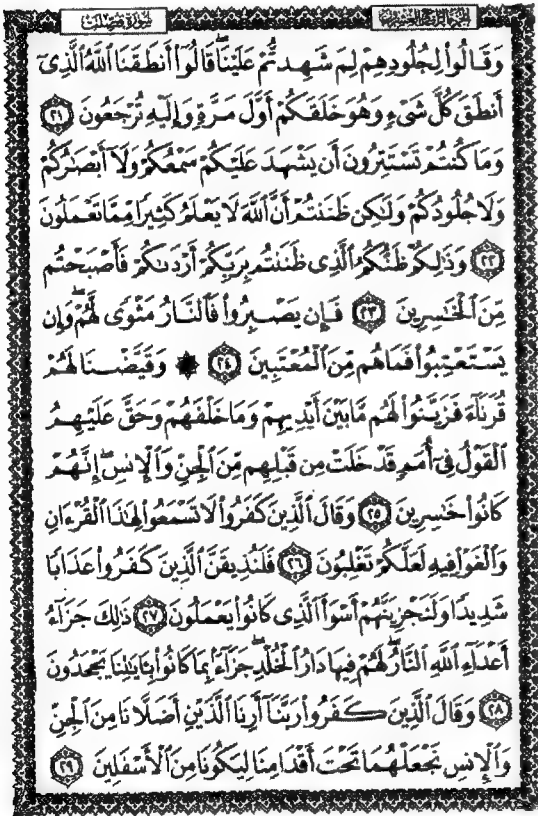 سورة فصلت
الجزء الرابع والعشرون
وَقَالُوا۟ لِجُلُودِهِمْ لِمَ شَهِدتُّمْ عَلَيْنَا ۖ قَالُوٓا۟ أَنطَقَنَا ٱللَّهُ ٱلَّذِىٓ
أَنطَقَ كُلَّ شَىْءٍ وَهُوَ خَلَقَكُمْ أَوَّلَ مَرَّةٍ وَإِلَيْهِ تُرْجَعُونَ ٢١
وَمَا كُنتُمْ تَسْتَتِرُونَ أَن يَشْهَدَ عَلَيْكُمْ سَمْعُكُمْ وَلَآ أَبْصَٰرُكُمْ
وَلَا جُلُودُكُمْ وَلَٰكِن ظَنَنتُمْ أَنَّ ٱللَّهَ لَا يَعْلَمُ كَثِيرًا مِّمَّا تَعْمَلُونَ
٢٢ وَذَٰلِكُمْ ظَنُّكُمُ ٱلَّذِى ظَنَنتُم بِرَبِّكُمْ أَرْدَىٰكُمْ فَأَصْبَحْتُم
مِّنَ ٱلْخَٰسِرِينَ ٢٣ فَإِن يَصْبِرُوا۟ فَٱلنَّارُ مَثْوًى لَّهُمْ ۖ وَإِن
يَسْتَعْتِبُوا۟ فَمَا هُم مِّنَ ٱلْمُعْتَبِينَ ٢٤ ۞ وَقَيَّضْنَا لَهُمْ
قُرَنَآءَ فَزَيَّنُوا۟ لَهُم مَّا بَيْنَ أَيْدِيهِمْ وَمَا خَلْفَهُمْ وَحَقَّ عَلَيْهِمُ
ٱلْقَوْلُ فِىٓ أُمَمٍ قَدْ خَلَتْ مِن قَبْلِهِم مِّنَ ٱلْجِنِّ وَٱلْإِنسِ ۖ إِنَّهُمْ
كَانُوا۟ خَٰسِرِينَ ٢٥ وَقَالَ ٱلَّذِينَ كَفَرُوا۟ لَا تَسْمَعُوا۟ لِهَٰذَا ٱلْقُرْءَانِ
وَٱلْغَوْا۟ فِيهِ لَعَلَّكُمْ تَغْلِبُونَ ٢٦ فَلَنُذِيقَنَّ ٱلَّذِينَ كَفَرُوا۟ عَذَابًا
شَدِيدًا وَلَنَجْزِيَنَّهُمْ أَسْوَأَ ٱلَّذِى كَانُوا۟ يَعْمَلُونَ ٢٧ ذَٰلِكَ جَزَآءُ
أَعْدَآءِ ٱللَّهِ ٱلنَّارُ ۖ لَهُمْ فِيهَا دَارُ ٱلْخُلْدِ ۖ جَزَآءًۢ بِمَا كَانُوا۟ بِـَٔايَٰتِنَا يَجْحَدُونَ
٢٨ وَقَالَ ٱلَّذِينَ كَفَرُوا۟ رَبَّنَآ أَرِنَا ٱلَّذَيْنِ أَضَلَّانَا مِنَ ٱلْجِنِّ
وَٱلْإِنسِ نَجْعَلْهُمَا تَحْتَ أَقْدَامِنَا لِيَكُونَا مِنَ ٱلْأَسْفَلِينَ ٢٩